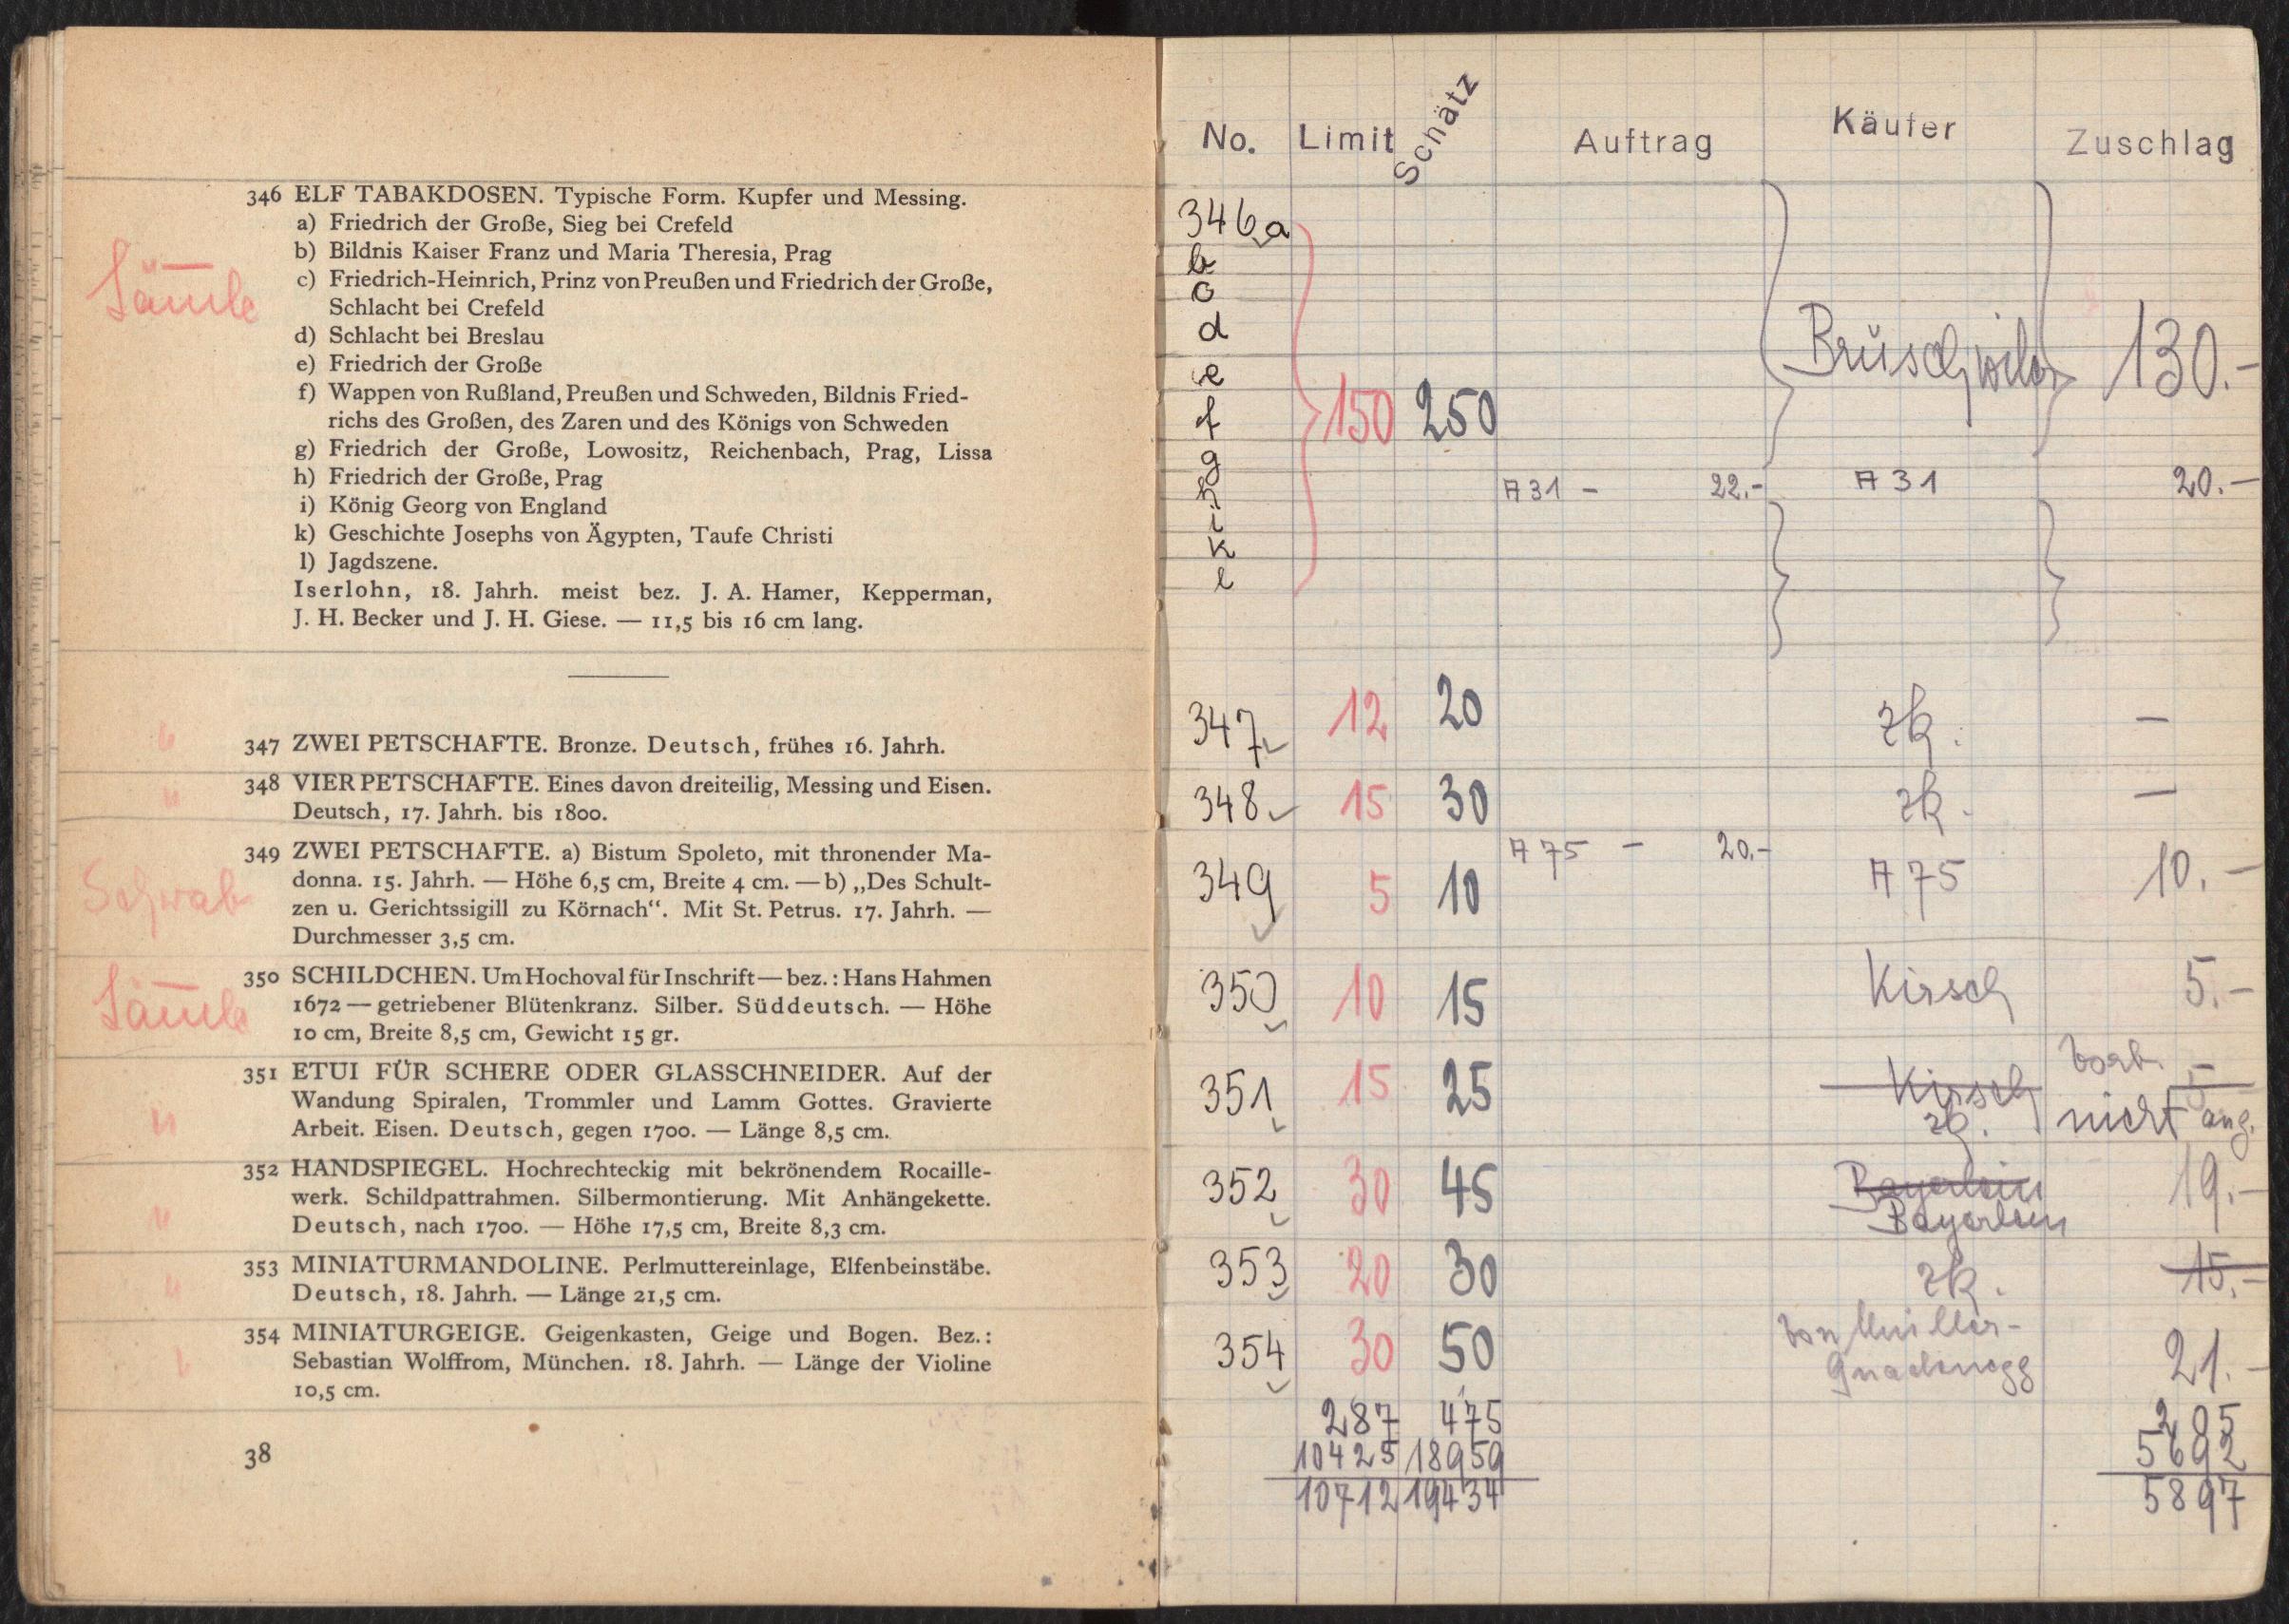 346 ELF TABAKDOSEN. Typische Form. Kupfer und Messing.
a) Friedrich der Große, Sieg bei Crefeld
b) Bildnis Kaiser Franz und Maria Theresia, Prag
c) Friedrich-Heinrich, Prinz von Preußen und Friedrich der Große,
Schlacht bei Crefeld
d) Schlacht bei Breslau
e) Friedrich der Große
f) Wappen von Rußland, Preußen und Schweden, Bildnis Fried-
richs des Großen, des Zaren und des Königs von Schweden
g) Friedrich der Große, Lowositz, Reichenbach, Prag, Lissa
h) Friedrich der Große, Prag
i) König Georg von England
k) Geschichte Josephs von Ägypten, Taufe Christi
l) Jagdszene.
Iserlohn, 18. Jahrh. meist bez. J. A. Hamer, Kepperman,
J. H. Becker und J. H. Giese. — 11,5 bis 16 cm lang.
347 ZWEI PETSCHAFTE. Bronze. Deutsch, frühes 16. Jahrh.
348 VIER PETSCHAFTE. Eines davon dreiteilig, Messing und Eisen.
Deutsch, 17. Jahrh. bis 1800.
Schwab
349 ZWEI PETSCHAFTE. a) Bistum Spoleto, mit thronender Ma-
donna. 15. Jahrh. — Höhe 6,5 cm, Breite 4 cm. — b) „Des Schult-
zen u. Gerichtssigill zu Körnach“. Mit St. Petrus. 17. Jahrh. —
Durchmesser 3,5 cm.
350 SCHILDCHEN. Um Hochoval für Inschrift — bez.: Hans Hahmen
1672 — getriebener Blütenkranz. Silber. Süddeutsch. — Höhe
10 cm, Breite 8,5 cm, Gewicht 15 gr.
351 ETUI FÜR SCHERE ODER GLASSCHNEIDER. Auf der
Wandung Spiralen, Trommler und Lamm Gottes. Gravierte
Arbeit. Eisen. Deutsch, gegen 1700. — Länge 8,5 cm.
352 HANDSPIEGEL. Hochrechteckig mit bekrönendem Rocaille-
werk. Schildpattrahmen. Silbermontierung. Mit Anhängekette.
Deutsch, nach 1700. — Höhe 17,5 cm, Breite 8,3 cm.
353 MINIATURMANDOLINE. Perlmuttereinlage, Elfenbeinstäbe.
Deutsch, 18. Jahrh. — Länge 21,5 cm.
354 MINIATURGEIGE. Geigenkasten, Geige und Bogen. Bez.:
Sebastian Wolffrom, München. 18. Jahrh. — Länge der Violine
10,5 cm.
38
No. Limit Schätz Auftrag Käufer Zuschlag
346 a
b
c
d
Brüschwiler 130.-
e
f 150 250
g
h A 31 - 22.- A 31 20.-
i
k
l
347 12 20 zk. —
348 15 30 zk. —
349 5 10 A 75 - 20.- A 75 10.-
350 10 15 Kirsch 5.-
351 15 25 Kirsch 5
zk. nicht ang.
352 30 45 Bayerlein 19.-
Bayerlein
353 20 30 zk. 15.-
354 30 50 von Müller-
Gnadenegg 21.-
287 475 205
10425 18959 5692
10712 19434 5897